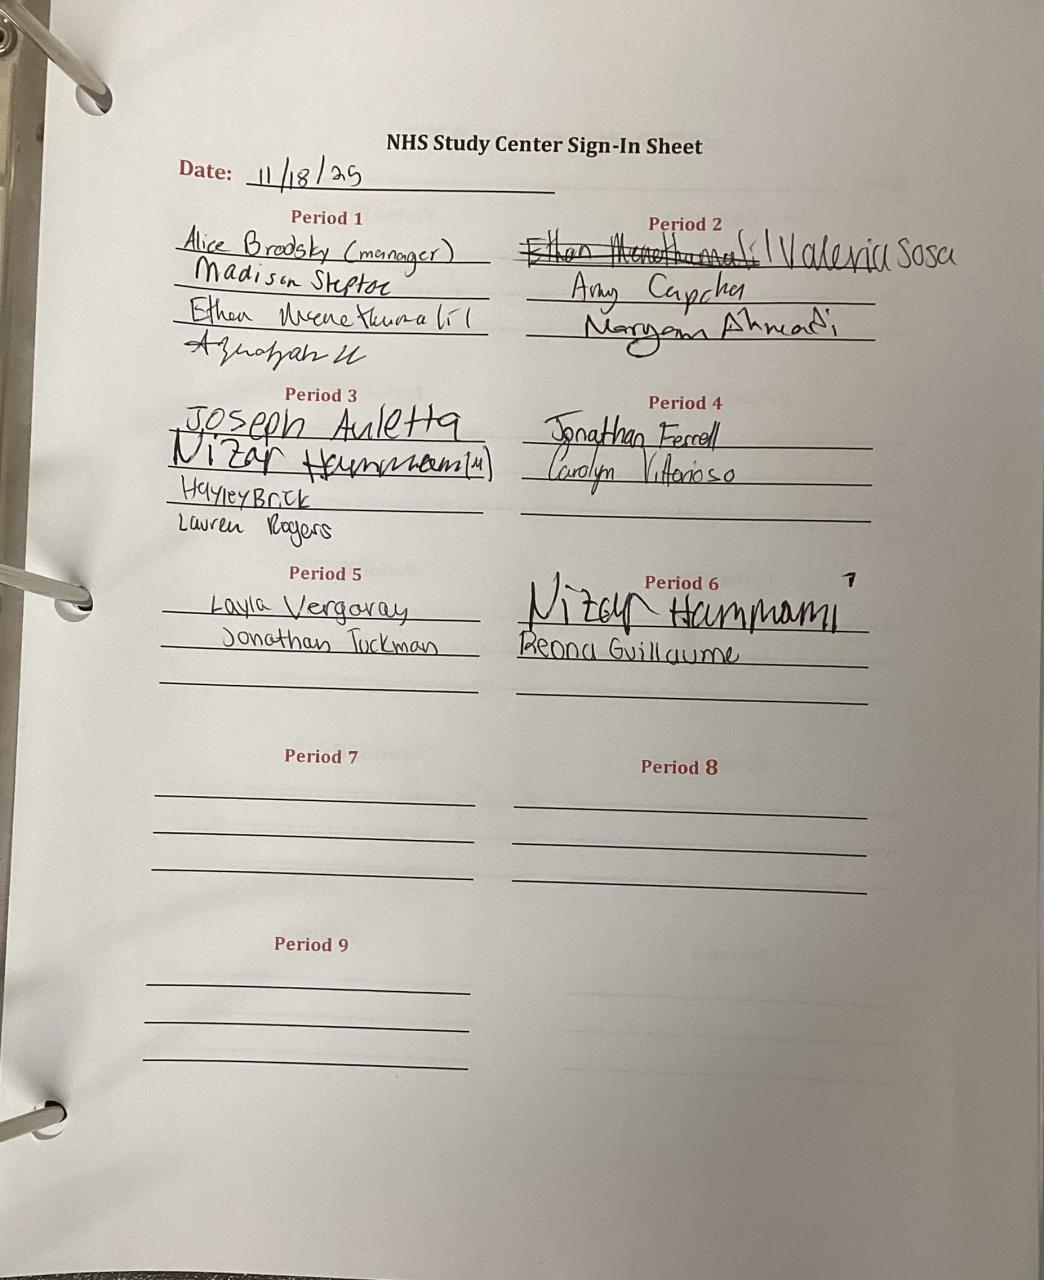 NHS Study Center Sign-In Sheet
Date: 11/18/25
Period 1
Alice Brodsky (manager)
Madison Steptoe
Ethan
Period 2
Valeria Sosa
Amy Capcha
Maryam Ahmadi
Period 3
Joseph Auletta
Nizar Hammami (M)
Hayley Brick
Lauren Rogers
Period 4
Jonathan Ferrell
Carolyn Vittorioso
Period 5
Layla Vergaray
Jonathan Tuckman
Period 6
Nizar Hammami
Reona Guillaume
Period 7
Period 8
Period 9